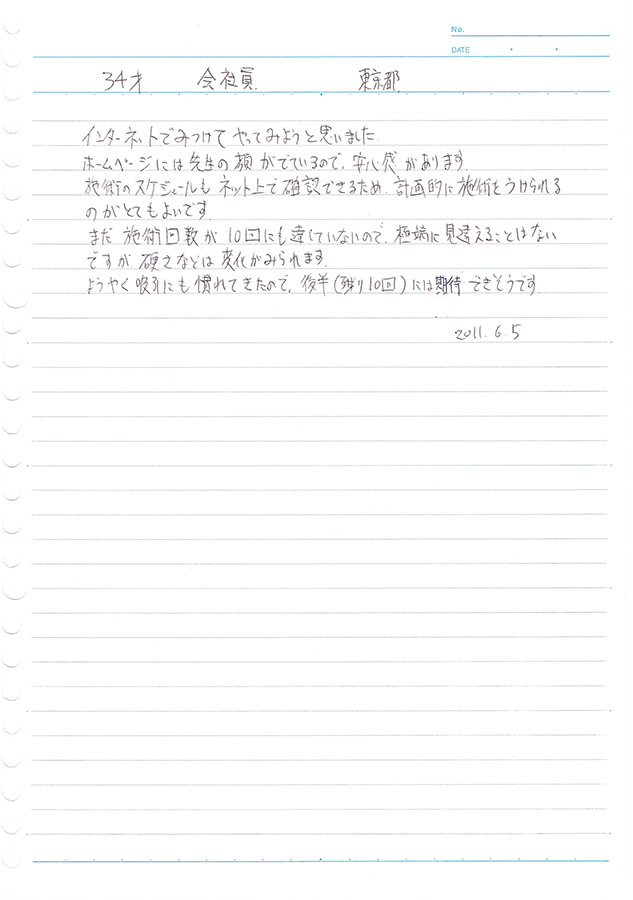 No.
DATE
34才 会社員 東京都
インターネットでみつけてやってみようと思いました
ホームページには先生の顔がでているので、安心感があります
施術のスケジュールもネット上で確認できるため、計画的に施術をうけられる
のがとてもよいです。
まだ施術回数が10回にも達していないので、極端に見違えることはない
ですが硬さなどは変化がみられます。
ようやく吸引にも慣れてきたので、後半(残り10回)には期待できそうです
2011.6.5